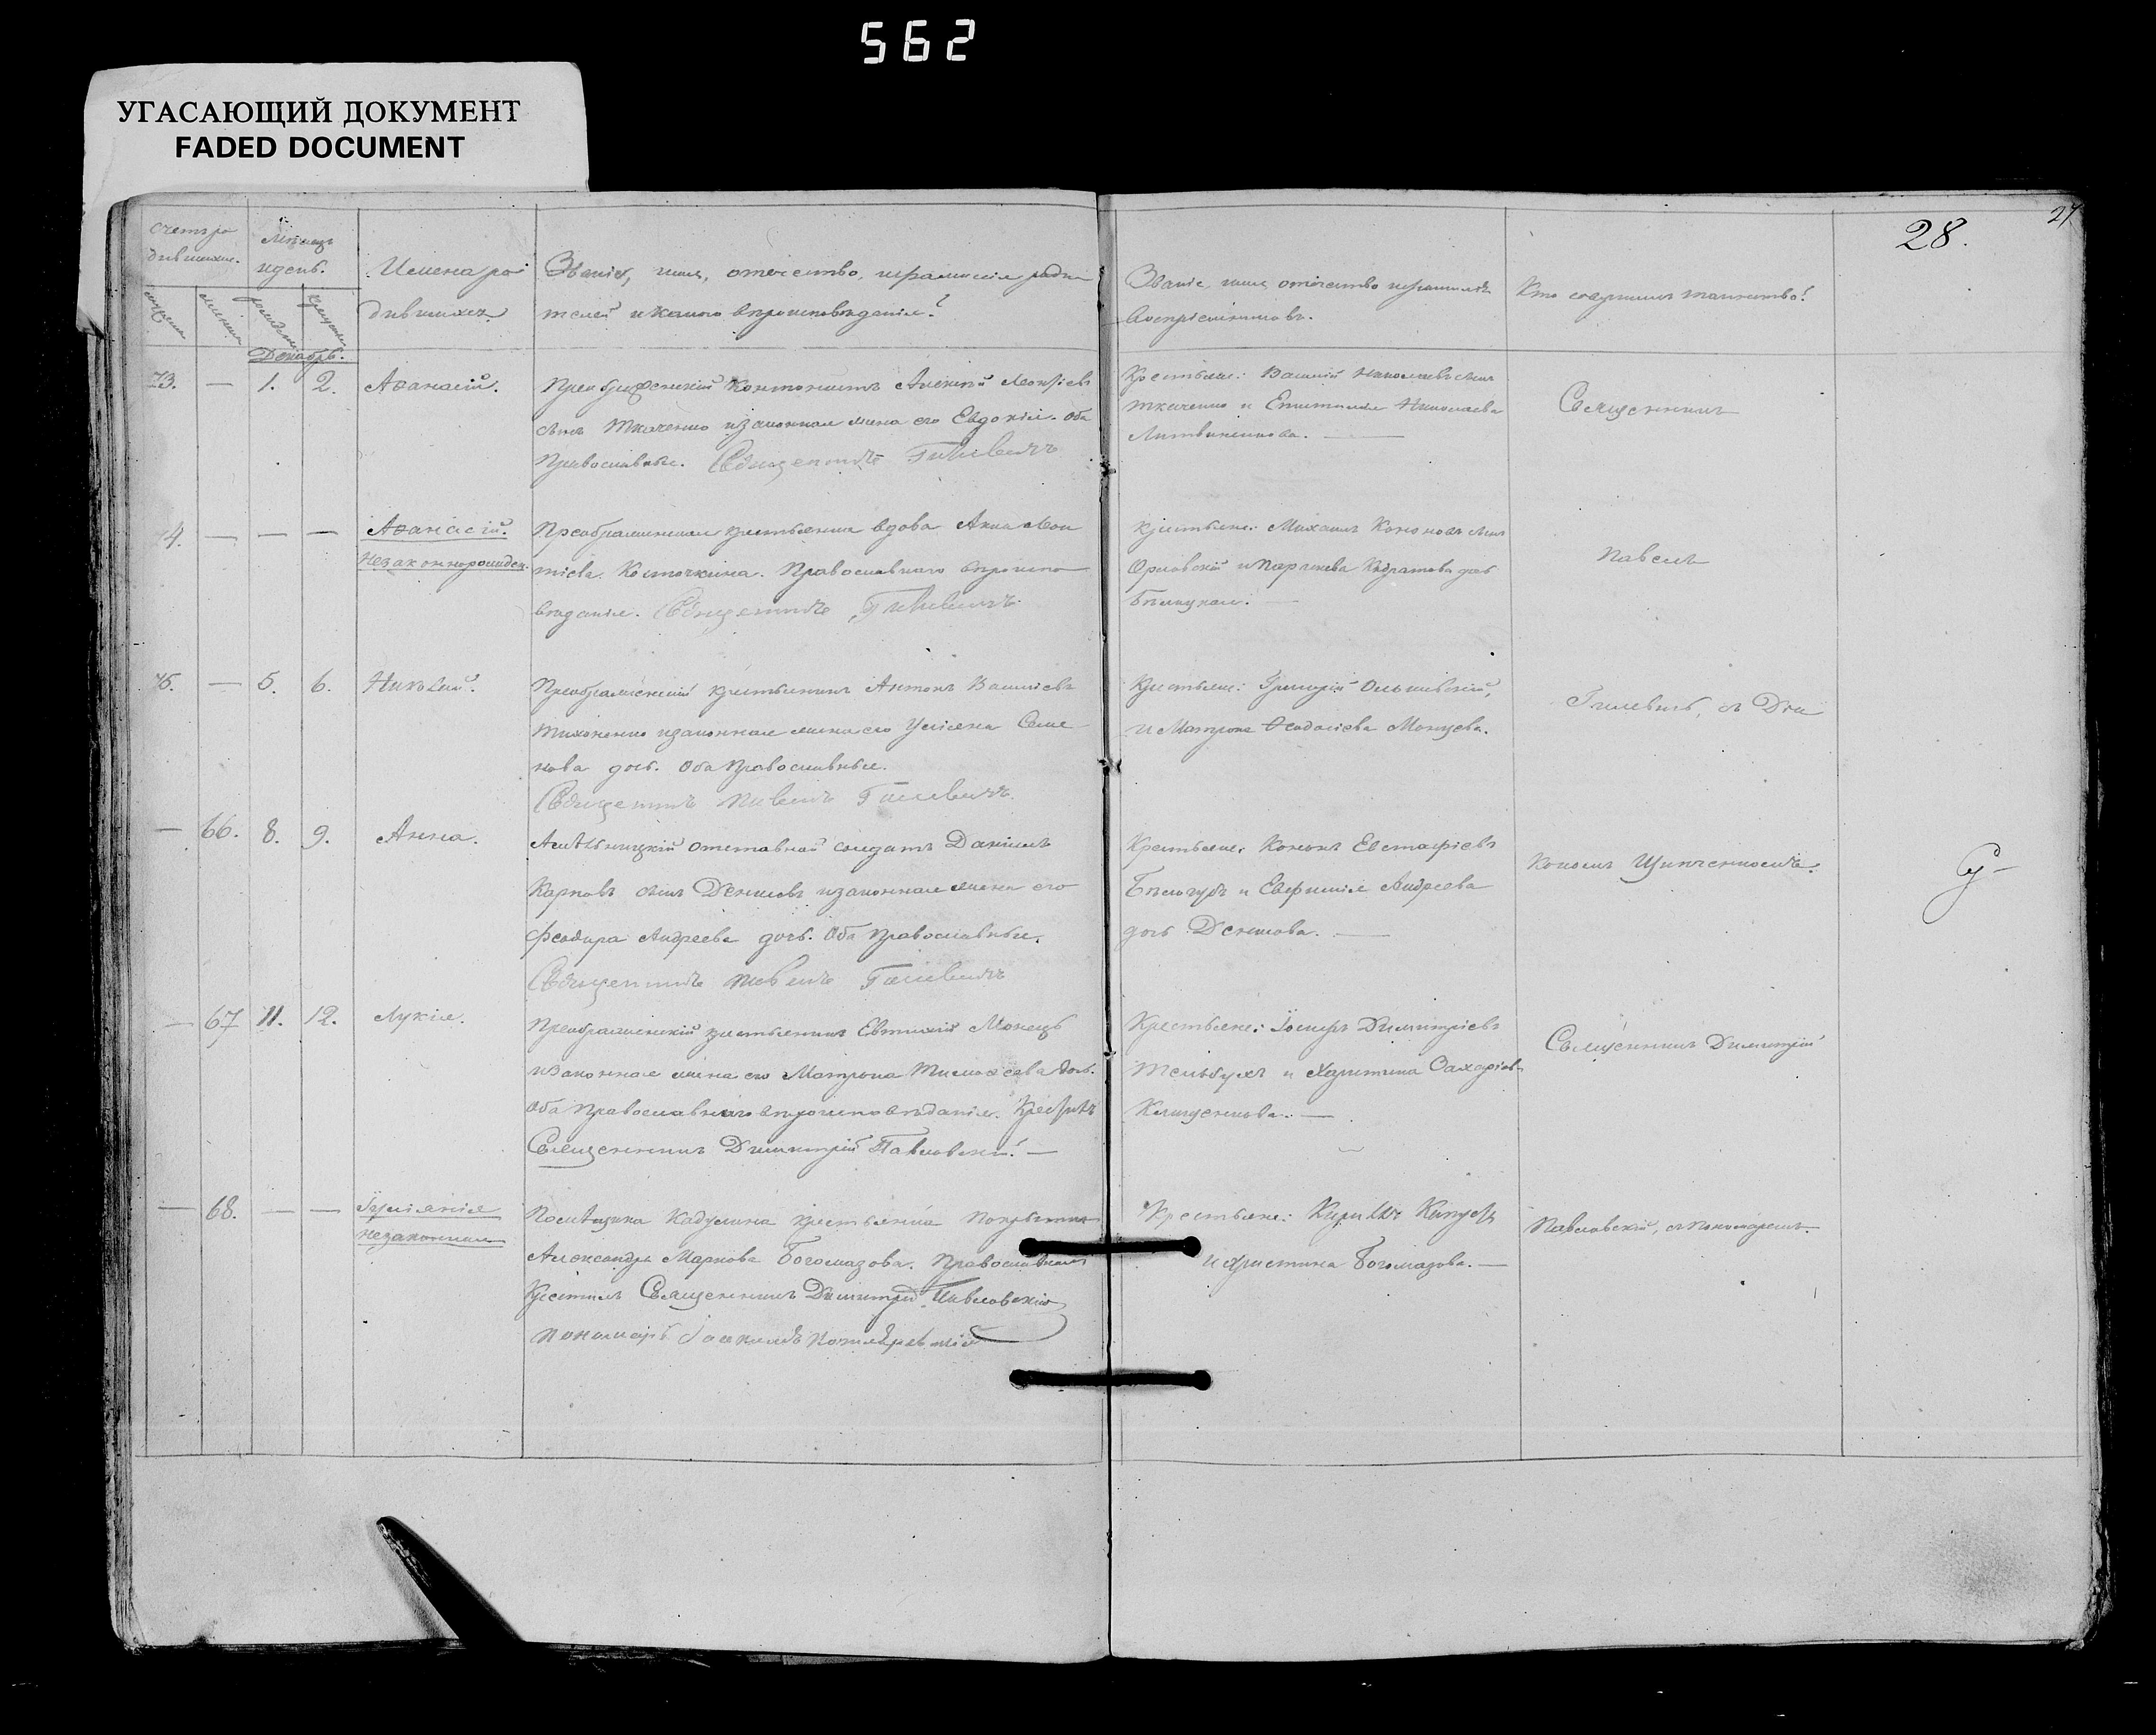 562
УГАСАЮЩИЙ ДОКУМЕНТ
FADED DOCUMENT
28.
27
Счетъ ро
дившихся.
Мѣсяцъ
и день.
Имена ро
дившихся.
Званіе, имя, отечество, и фамилія роди
телей и какого вѣроисповѣданія?
Званіе, имя, отечество и фамилія
Воспріемниковъ.
Кто совершилъ таинство?
Декабрь.
73. — 1. 2. Аѳанасій.
Преображенскій Алексѣй Леонтіевъ
сынъ Ткаченко и законная жена его Евдокія. Оба
Православные. Священникъ Гилевичъ
Крестьяне: Василій Николаевъ сынъ
Ткаченко и Николаева
Литвиненкова. —
Священникъ
74. — — — Аѳанасій.
Незаконнорожден.
Преображенская крестьянка вдова Анна Леон
тіева Косточкина. Православнаго вѣроиспо
вѣданія. Священникъ Гилевичъ
Крестьяне: Михаилъ Кононовъ сынъ
Орловскій и Параскева Кодратова дочь
Бѣлицкая. —
Павелъ
75. — 5. 6. Николай.
Преображенскій крестьянинъ Антонъ Василіевъ
Тихоненко и законная жена его Уліяна Семе
нова дочь. Оба Православные.
Священникъ Павелъ Гилевичъ
Крестьяне: Григорій Ольшевскій,
и Матрона Ѳеодосіева Монцева.
Гилевичъ, съ Дья
— 66. 8. 9. Анна.
отставной солдатъ Даніилъ
Карповъ сынъ Денисовъ и законная жена его
Феодора Андреева дочь. Оба Православные.
Священникъ Павелъ Гилевичъ
Крестьяне: Кононъ Евстафіевъ
Бѣлогубъ и Евфимія Андреева
дочь Денисова. —
кономъ Щипченкомъ.
— 67 11. 12. Лукія.
Преображенскій крестьянинъ Евтихій Монецъ
и законная жена его Матрона Тимоѳеева дочь.
Оба Православнаго вѣроисповѣданія. Крестилъ
Священникъ Димитрій Павловскій. —
Крестьяне: Іосифъ Димитріевъ
Тельбухъ и Харитина Захаріев
Клищенкова. —
Священникъ Димитрій
— 68. — — Іуліянія
незаконная
Помѣщика Кадулина крестьянка Покрытка
Александра Маркова Богомазова. Православная
Крестилъ Священникъ Димитрій Павловскій
Пономарь
Крестьяне: Кирилъ
и Христина Богомазова. —
Павловскій, съ пономаремъ.